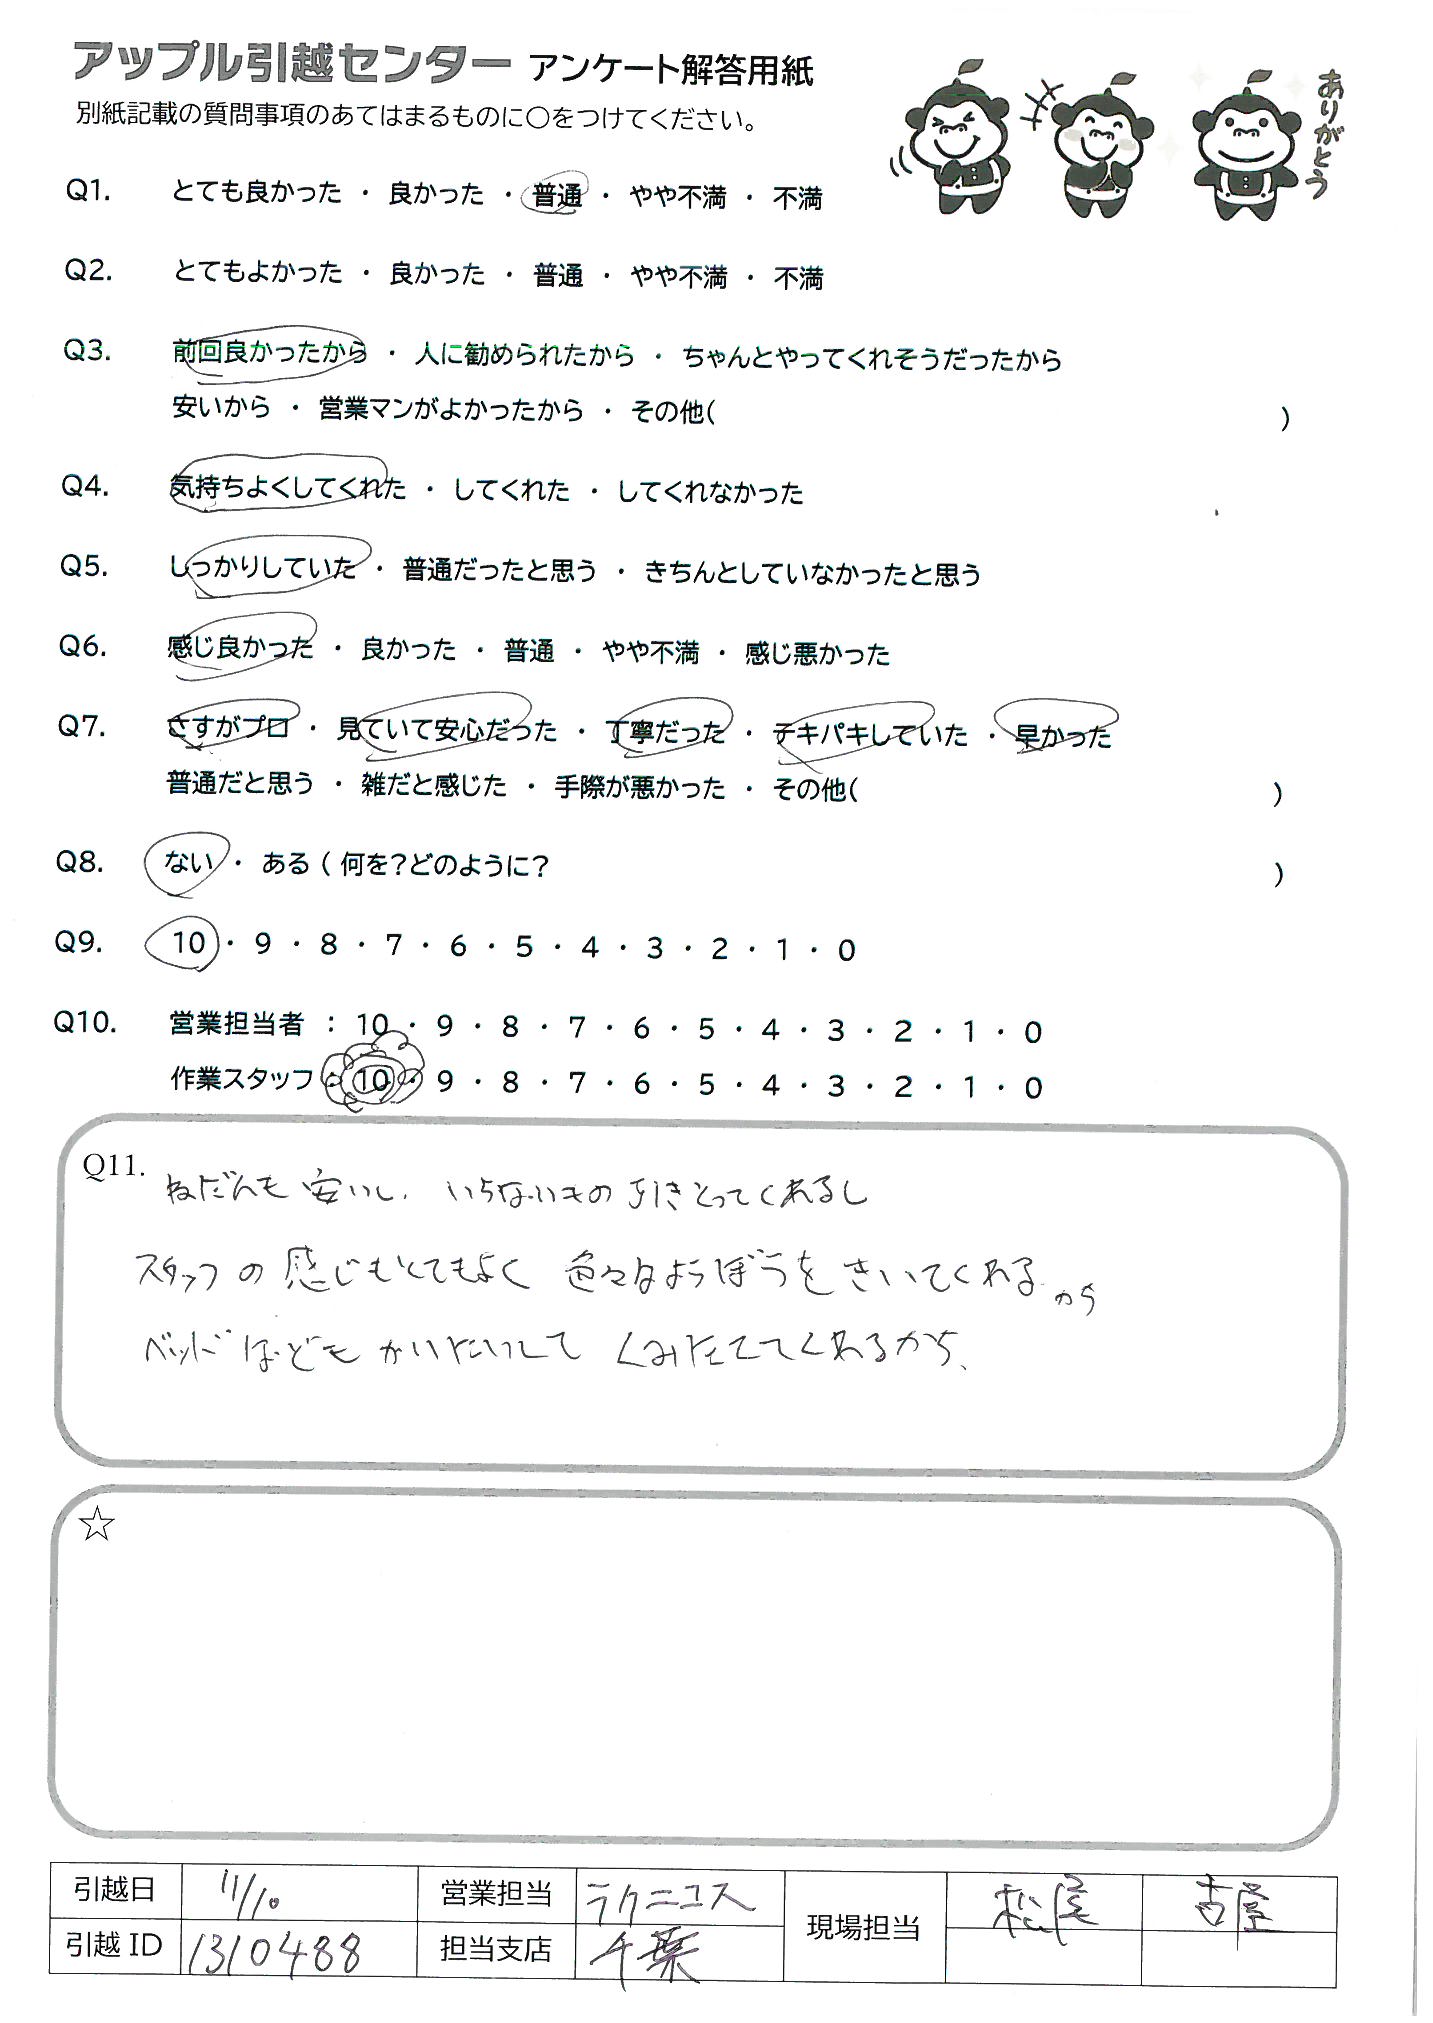 アップル引越センター アンケート解答用紙
別紙記載の質問事項のあてはまるものに○をつけてください。
ありがとう
Q1. とても良かった ・ 良かった ・ 普通 ・ やや不満 ・ 不満
Q2. とてもよかった ・ 良かった ・ 普通 ・ やや不満 ・ 不満
Q3. 前回良かったから ・ 人に勧められたから ・ ちゃんとやってくれそうだったから
安いから ・ 営業マンがよかったから ・ その他( )
Q4. 気持ちよくしてくれた ・ してくれた ・ してくれなかった
Q5. しっかりしていた ・ 普通だったと思う ・ きちんとしていなかったと思う
Q6. 感じ良かった ・ 良かった ・ 普通 ・ やや不満 ・ 感じ悪かった
Q7. さすがプロ ・ 見ていて安心だった ・ 丁寧だった ・ テキパキしていた ・ 早かった
普通だと思う ・ 雑だと感じた ・ 手際が悪かった ・ その他( )
Q8. ない ・ ある ( 何を?どのように? )
Q9. 10 ・ 9 ・ 8 ・ 7 ・ 6 ・ 5 ・ 4 ・ 3 ・ 2 ・ 1 ・ 0
Q10. 営業担当者 : 10 ・ 9 ・ 8 ・ 7 ・ 6 ・ 5 ・ 4 ・ 3 ・ 2 ・ 1 ・ 0
作業スタッフ : 10 ・ 9 ・ 8 ・ 7 ・ 6 ・ 5 ・ 4 ・ 3 ・ 2 ・ 1 ・ 0
Q11. ねだんも安いし、いらないもの引きとってくれるし
スタッフの感じもとてもよく 色々なようぼうをきいてくれるから
ベッドなどもかいたいして くみたててくれるから、
☆
引越日 11/10 営業担当 ラクニコス 現場担当 松尾 古屋
引越ID 1310488 担当支店 千葉